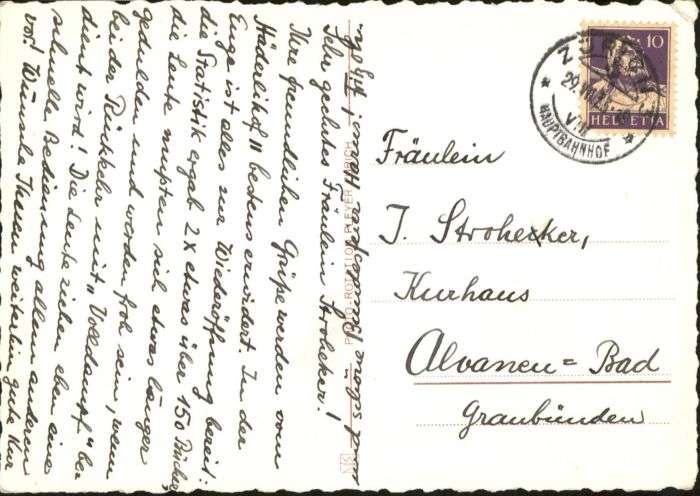 Sehr geehrtes Fräulein Stroheker!
Ihre freundlichen Grüße werden vom
Häderlihof !! bestens erwidert. In der
Enge ist alles zur Wiederöffnung bereit:
die Statistik ergab 2x etwas über 150 Bücher,
die Leute mußten sich etwas länger
gedulden und werden froh sein, wenn
bei der Rückkehr mit „Volldampf" be-
dient wird! Die Leute ziehen eben eine
schnelle Bedienung allem anderen
vor! Wünsche Ihnen weiterhin gute Kur
PHOTO-ROTATION
10
HELVETIA
ZÜRICH
HAUPTBAHNHOF
Fräulein
J. Stroheker,
Kurhaus
Alvaneu=Bad
Graubünden